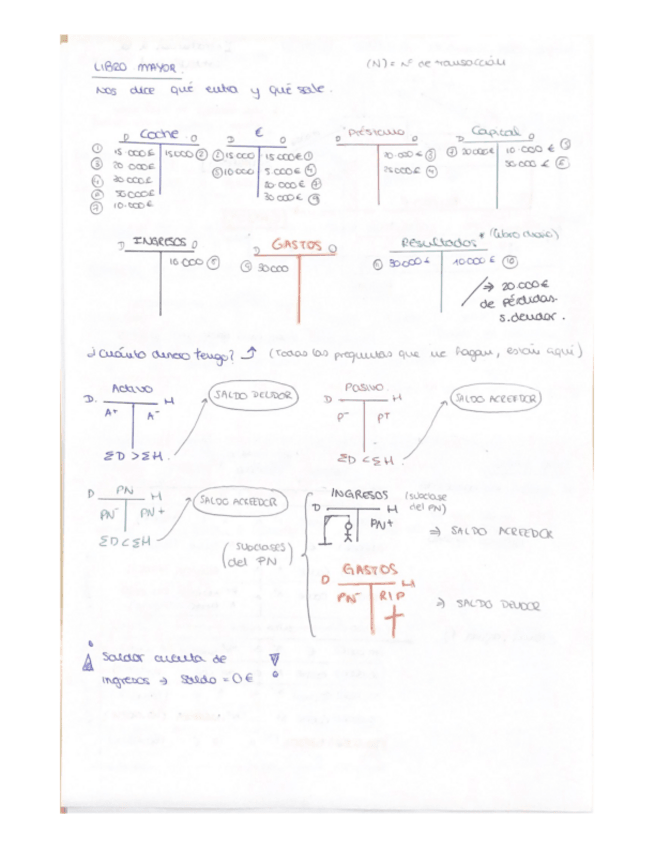 LIBRO MAYOR.
(N) = Nº de transacción
Nos dice qué entra y qué sale.
D Coche
D € O
Préstamo
D Capital O
① 15 000€ 15000 ②
② 15 000 15 000€ ①
20 000 €
20 000€ 10 000 €
③ 20 000€
③ 10 000 5 000€
25 000€ ④
50 000 €
④ 30 000€
⑥ 50000€
⑦ 10.000€
D INGRESOS O
D GASTOS O
Resultados * (Libro diario)
10 000
50000
30.000€ 10000 € ⑩
→ 20.000€
de pérdidas.
S. deudor.
¿Cuánto dinero tengo? ↑ (Todas las preguntas que me hagan, están aquí)
D. Activo H
A+ A-
SALDO DEUDOR
ΣD > ΣH.
D Pasivo. H
P- P+
SALDO ACREEDOR
ΣD < ΣH
D PN H
PN- PN+
SALDO ACREEDOR
ΣD < ΣH
(subclases del PN)
INGRESOS (subclase del PN)
D H
PN+
⇒ SALDO ACREEDOR
GASTOS
D H
PN- RIP
⇒ SALDO DEUDOR
¡ Saldar cuenta de !
ingresos → Saldo = 0€